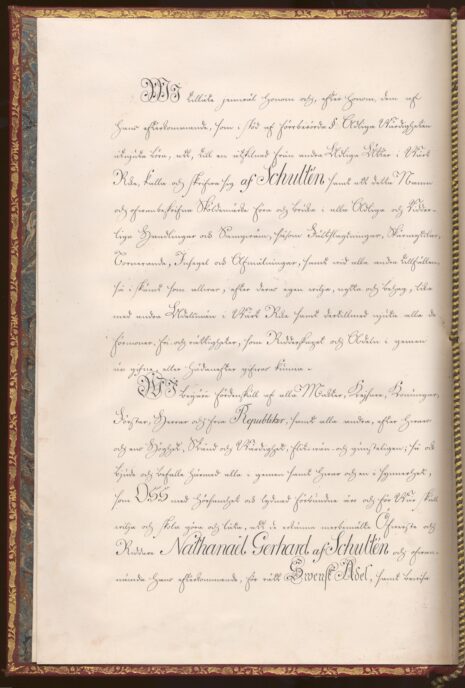 WI tillåte jemväl honom och, efter honom, dem af
Hans efterkommande, som i stöd af förberörde Adliga Wärdigheten
till en åtskilnad från andra Adliga Ätter i Wårt
Rike, kalla och skrifva sig af Schultén samt att detta Namn
och ofvanbeskrifne Sköldemärke föra och bruka i alla Adliga och Ridder-
lige Handlingar och såsom Fältslagningar,
Tornerande, Insegel och Afmålningar, samt vid alla andra tillfällen,
så i skämt som allvar, efter deras egen vilja, nytta och behag, lika
med andra Adelsmän i Wårt Rike samt dertill med njuta alla de
förmoner, fri- och rättigheter, som Ridderskapet och Adeln i gemen
nu gifne, eller hädanefter gifvas kunna.
WI begäre fördenskull af alla Magter, Kejsare, Konungar,
Förster, Herrar och frie Republiker, samt alla andra, efter hvars
och ens Höghet, Stånd och Wärdighet, och gunsteligen; så ock
bjude och befalle härmed alla i gemen samt hvar och en i synnerhet,
som OSS med Hörsamhet och lydnad förbundne äro och för Wår skull
vilja och skola göra och låta, att de erkänna merbemälte Öfverste och
Riddare Nathanaël Gerhard af Schultén och ofvan-
nämnde Hans efterkommande, för rätt Svensk Adel, samt bevise